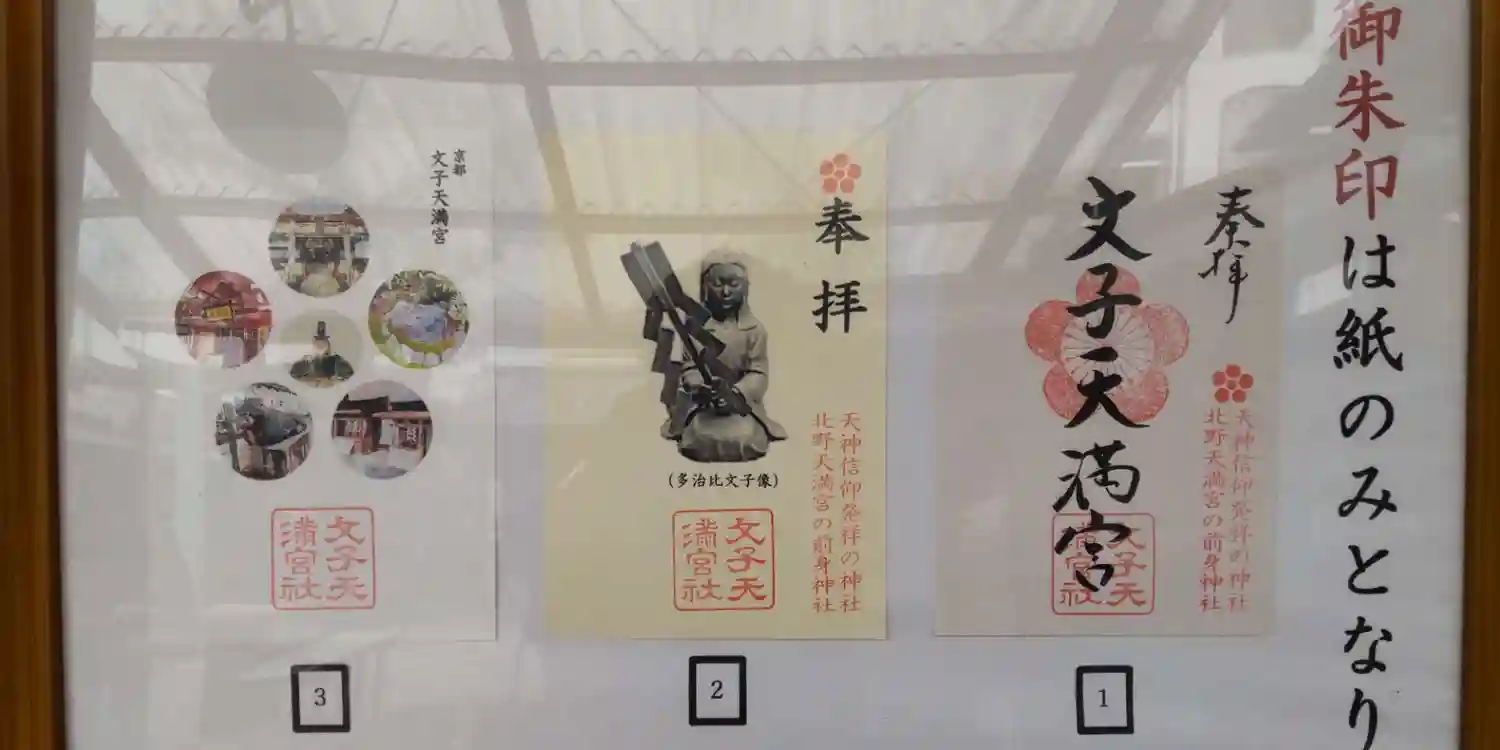 御朱印は紙のみとなり
奉拝
文子天満宮
天神信仰発祥の神社
北野天満宮の前身神社
文子天
満宮社
1
奉拝
天神信仰発祥の神社
北野天満宮の前身神社
(多治比文子像)
文子天
満宮社
2
京都
文子天満宮
文子天
満宮社
3